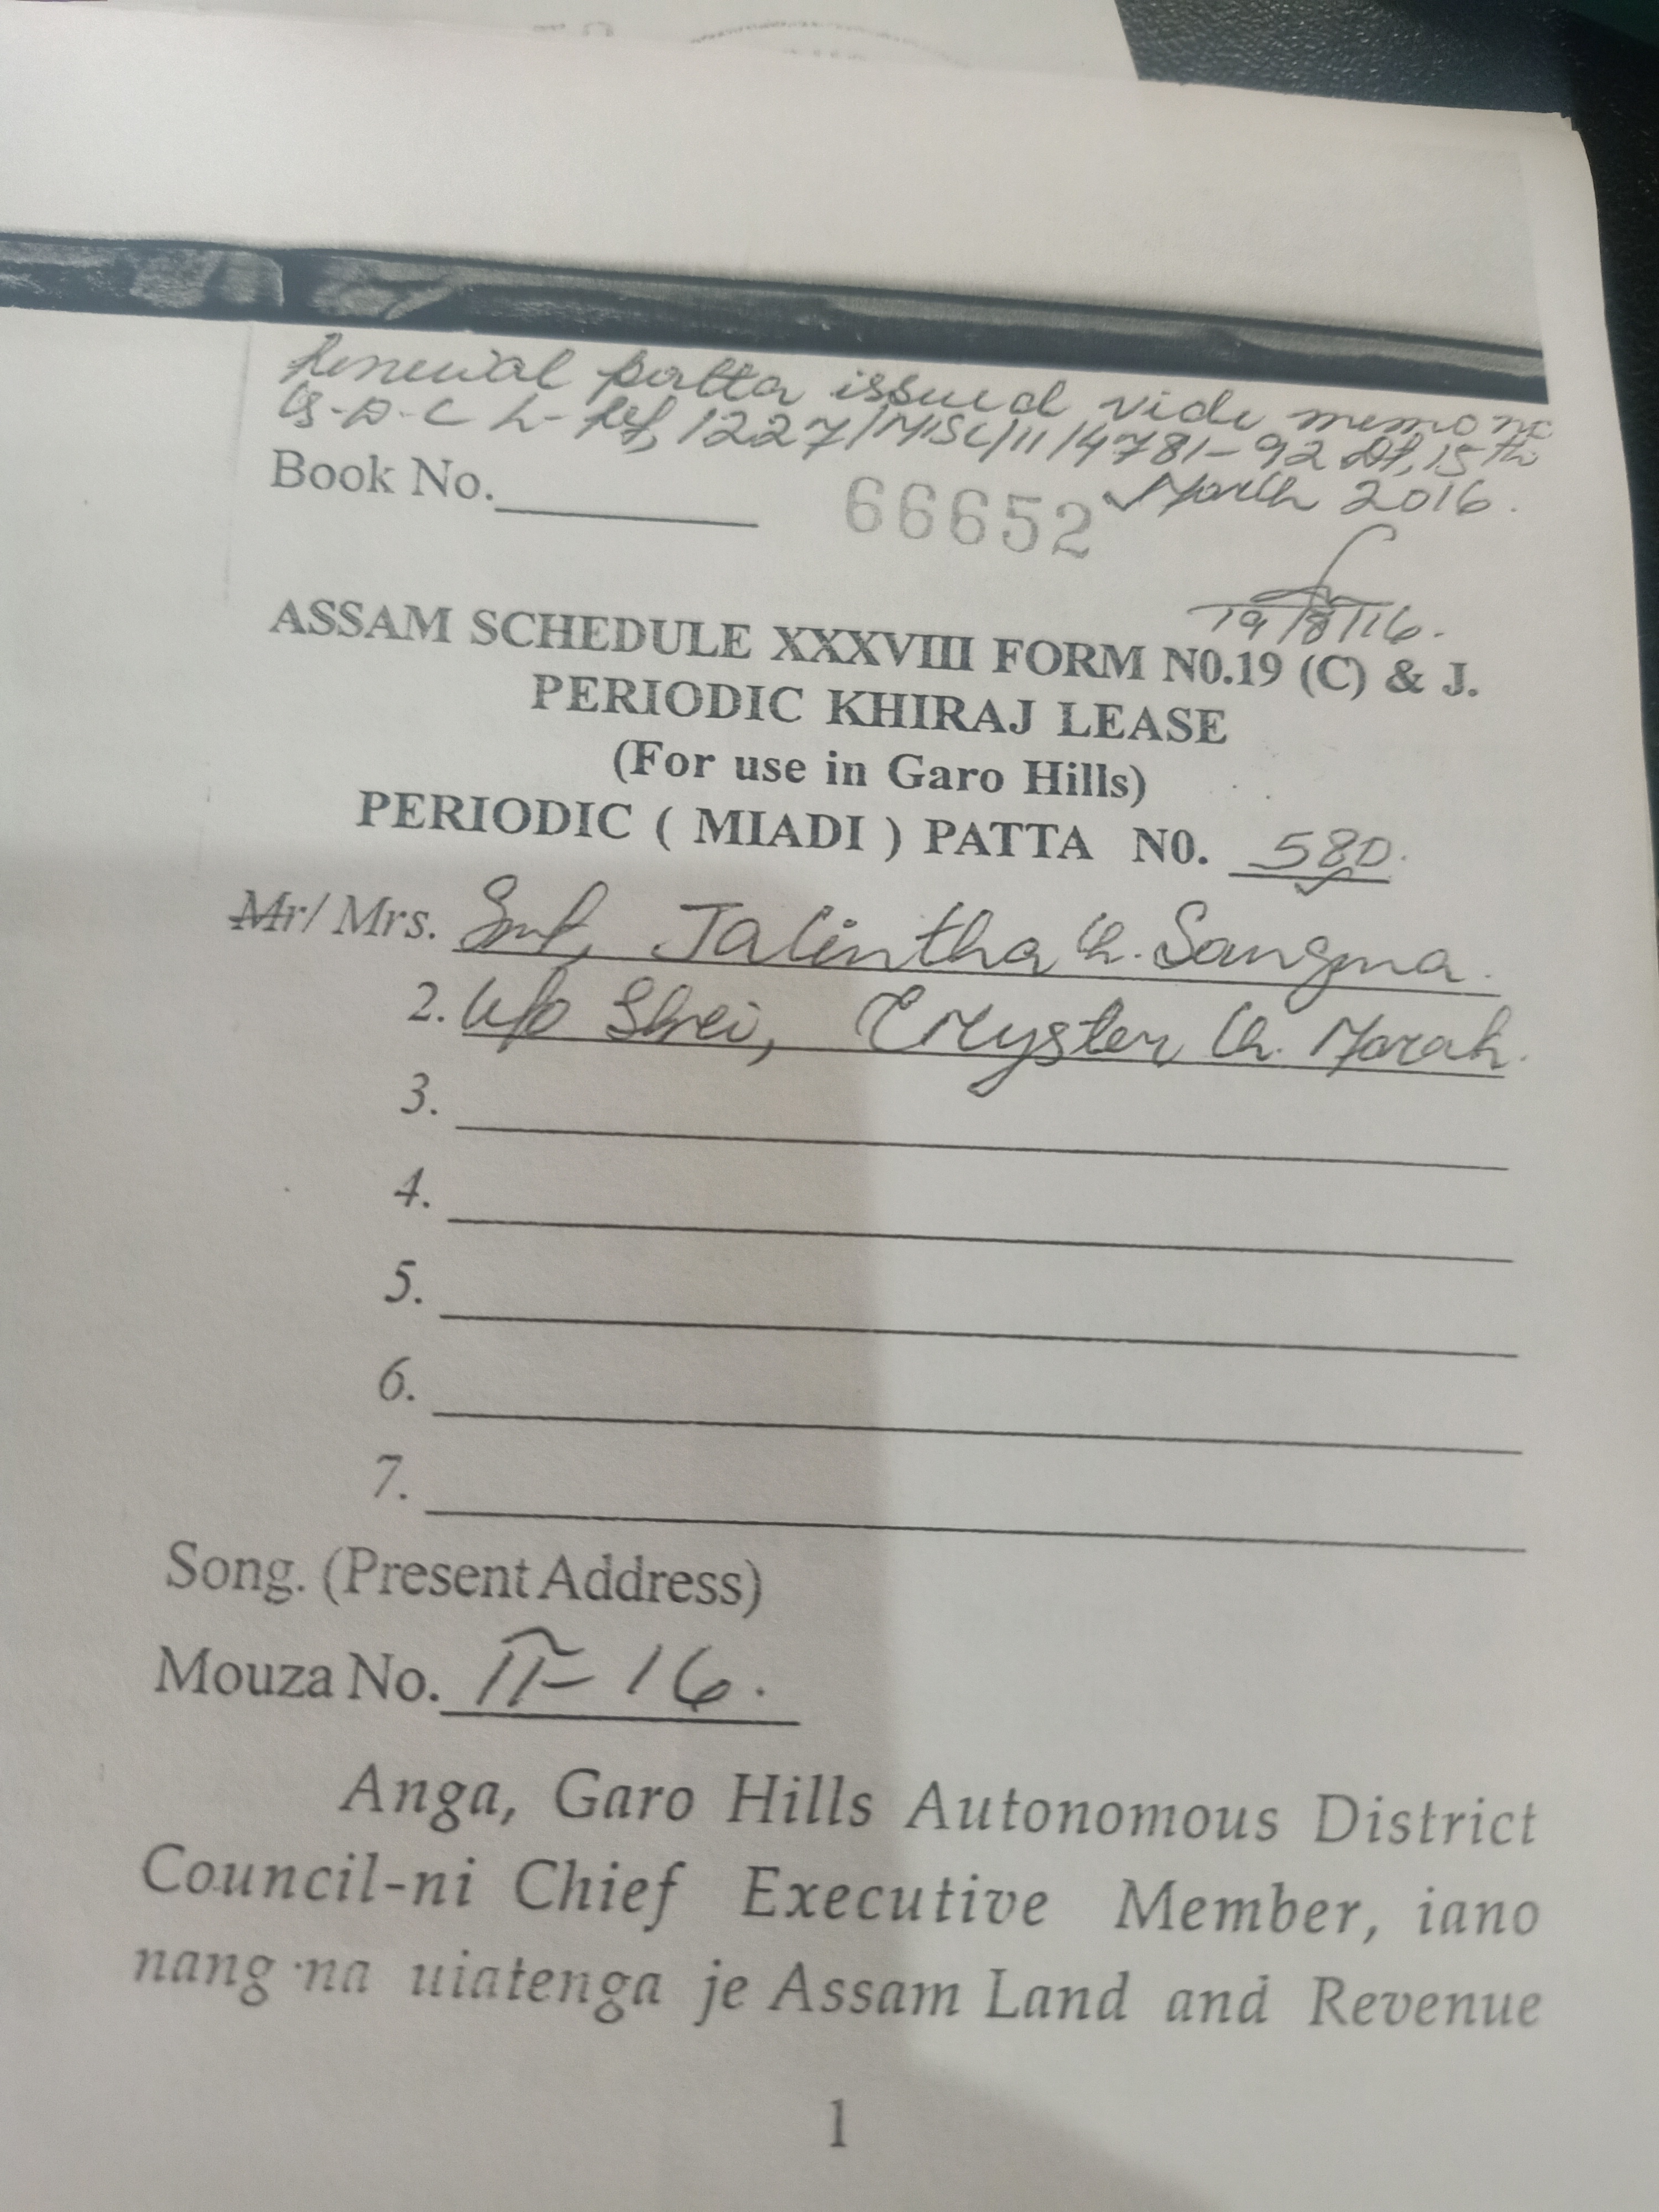 Renewal patta issued vide memo no
G.D.C L-Ref, 1227/MISC/11/4781-92 dt, 15th
March 2016.
Book No. 66652
19/8/16.
ASSAM SCHEDULE XXXVIII FORM N0.19 (C) & J.
PERIODIC KHIRAJ LEASE
(For use in Garo Hills)
PERIODIC ( MIADI ) PATTA N0. 580.
Mr/ Mrs. Smt, Jalintha Ch. Sangma.
2. W/o Shri, Ch. Marak.
3.
4.
5.
6.
7.
Song. (Present Address)
Mouza No. II-16.
Anga, Garo Hills Autonomous District
Council-ni Chief Executive Member, iano
nang·na uiatenga je Assam Land and Revenue
1